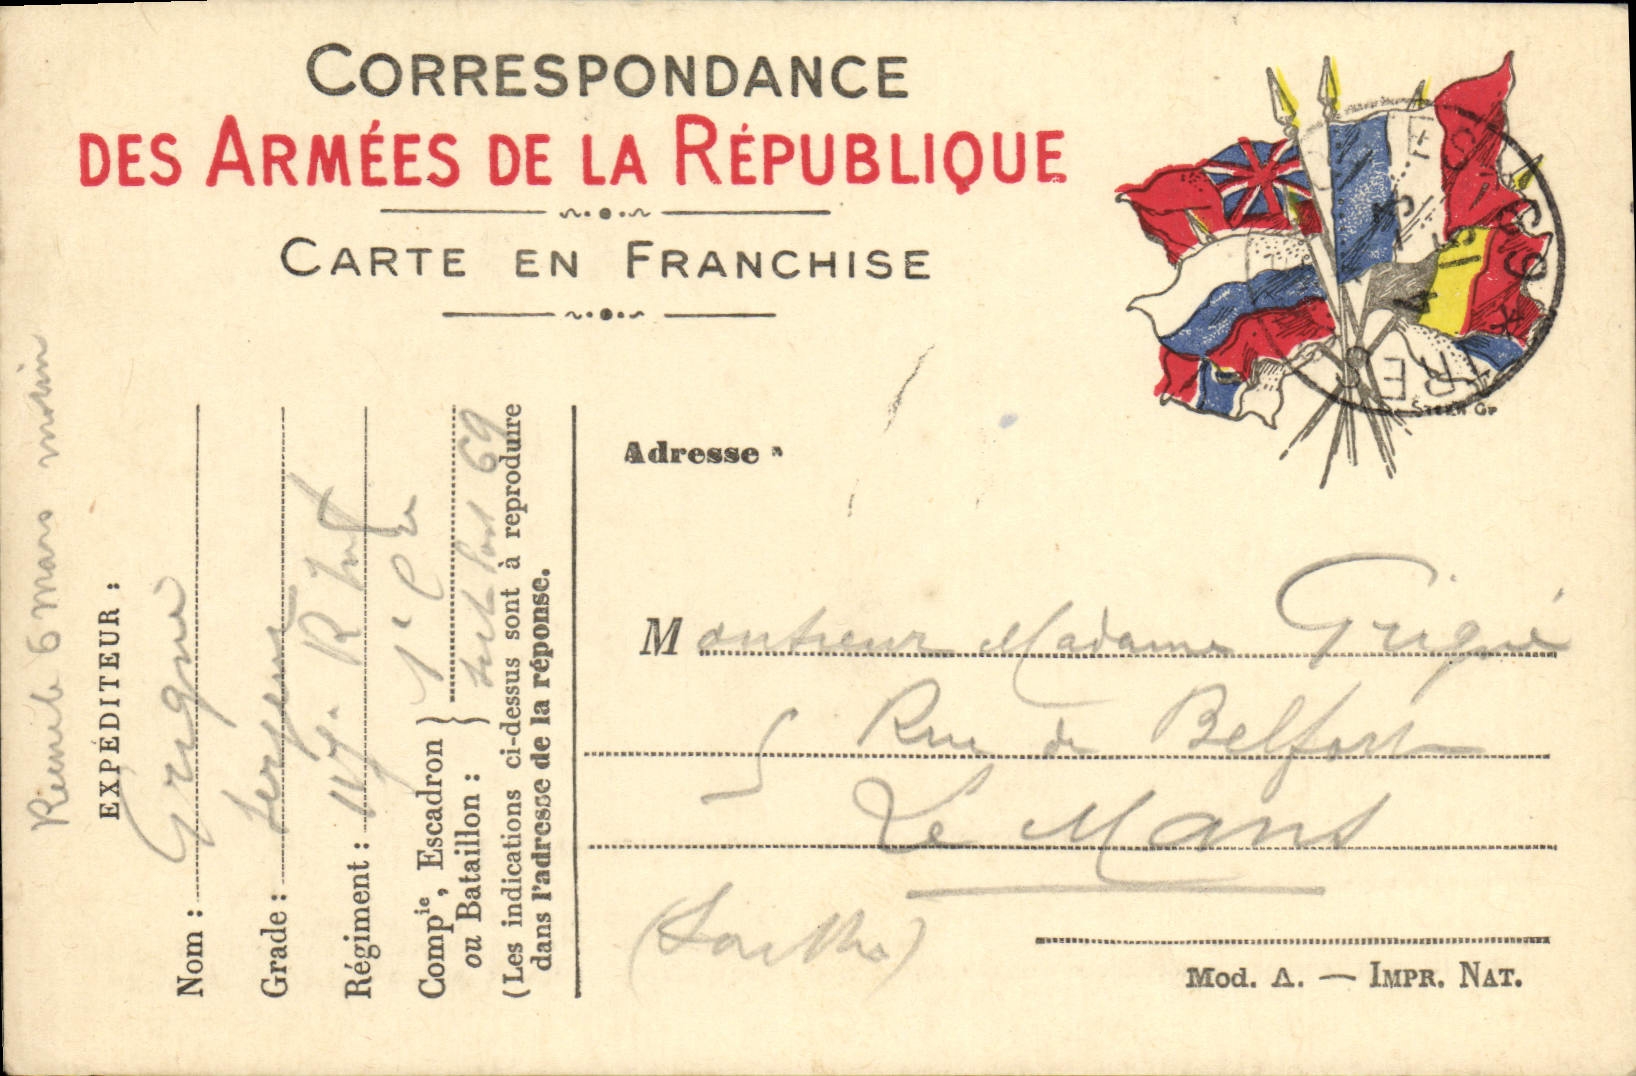 CORRESPONDANCE
DES ARMÉES DE LA RÉPUBLIQUE
CARTE EN FRANCHISE
Adresse
Monsieur Madame Grigné
5 Rue de Belfort
Le Mans
(Sarthe)
Mod. A. — IMPR. NAT.
6 mars
EXPÉDITEUR :
Nom : Grigné
Grade : Sergent
Régiment : 117e R Inf
Compie, Escadron } 1e Cie
ou Bataillon : 69
(Les indications ci-dessus sont à reproduire
dans l'adresse de la réponse.